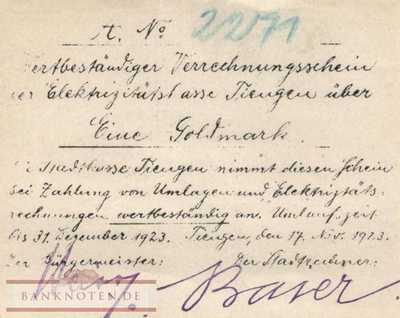 A. No 2271
Wertbeständiger Verrechnungsschein
der Elektrizitätskasse Tiengen über
Eine Goldmark.
Die Stadtkasse Tiengen nimmt diesen Schein
bei Zahlung von Umlagen und Elektrizitäts-
rechnungen wertbeständig an. Umlaufszeit
bis 31. Dezember 1923. Tiengen, den 17. Nov. 1923.
Der Bürgermeister: Der Stadtrechner:
Baser.
BANKNOTEN.DE